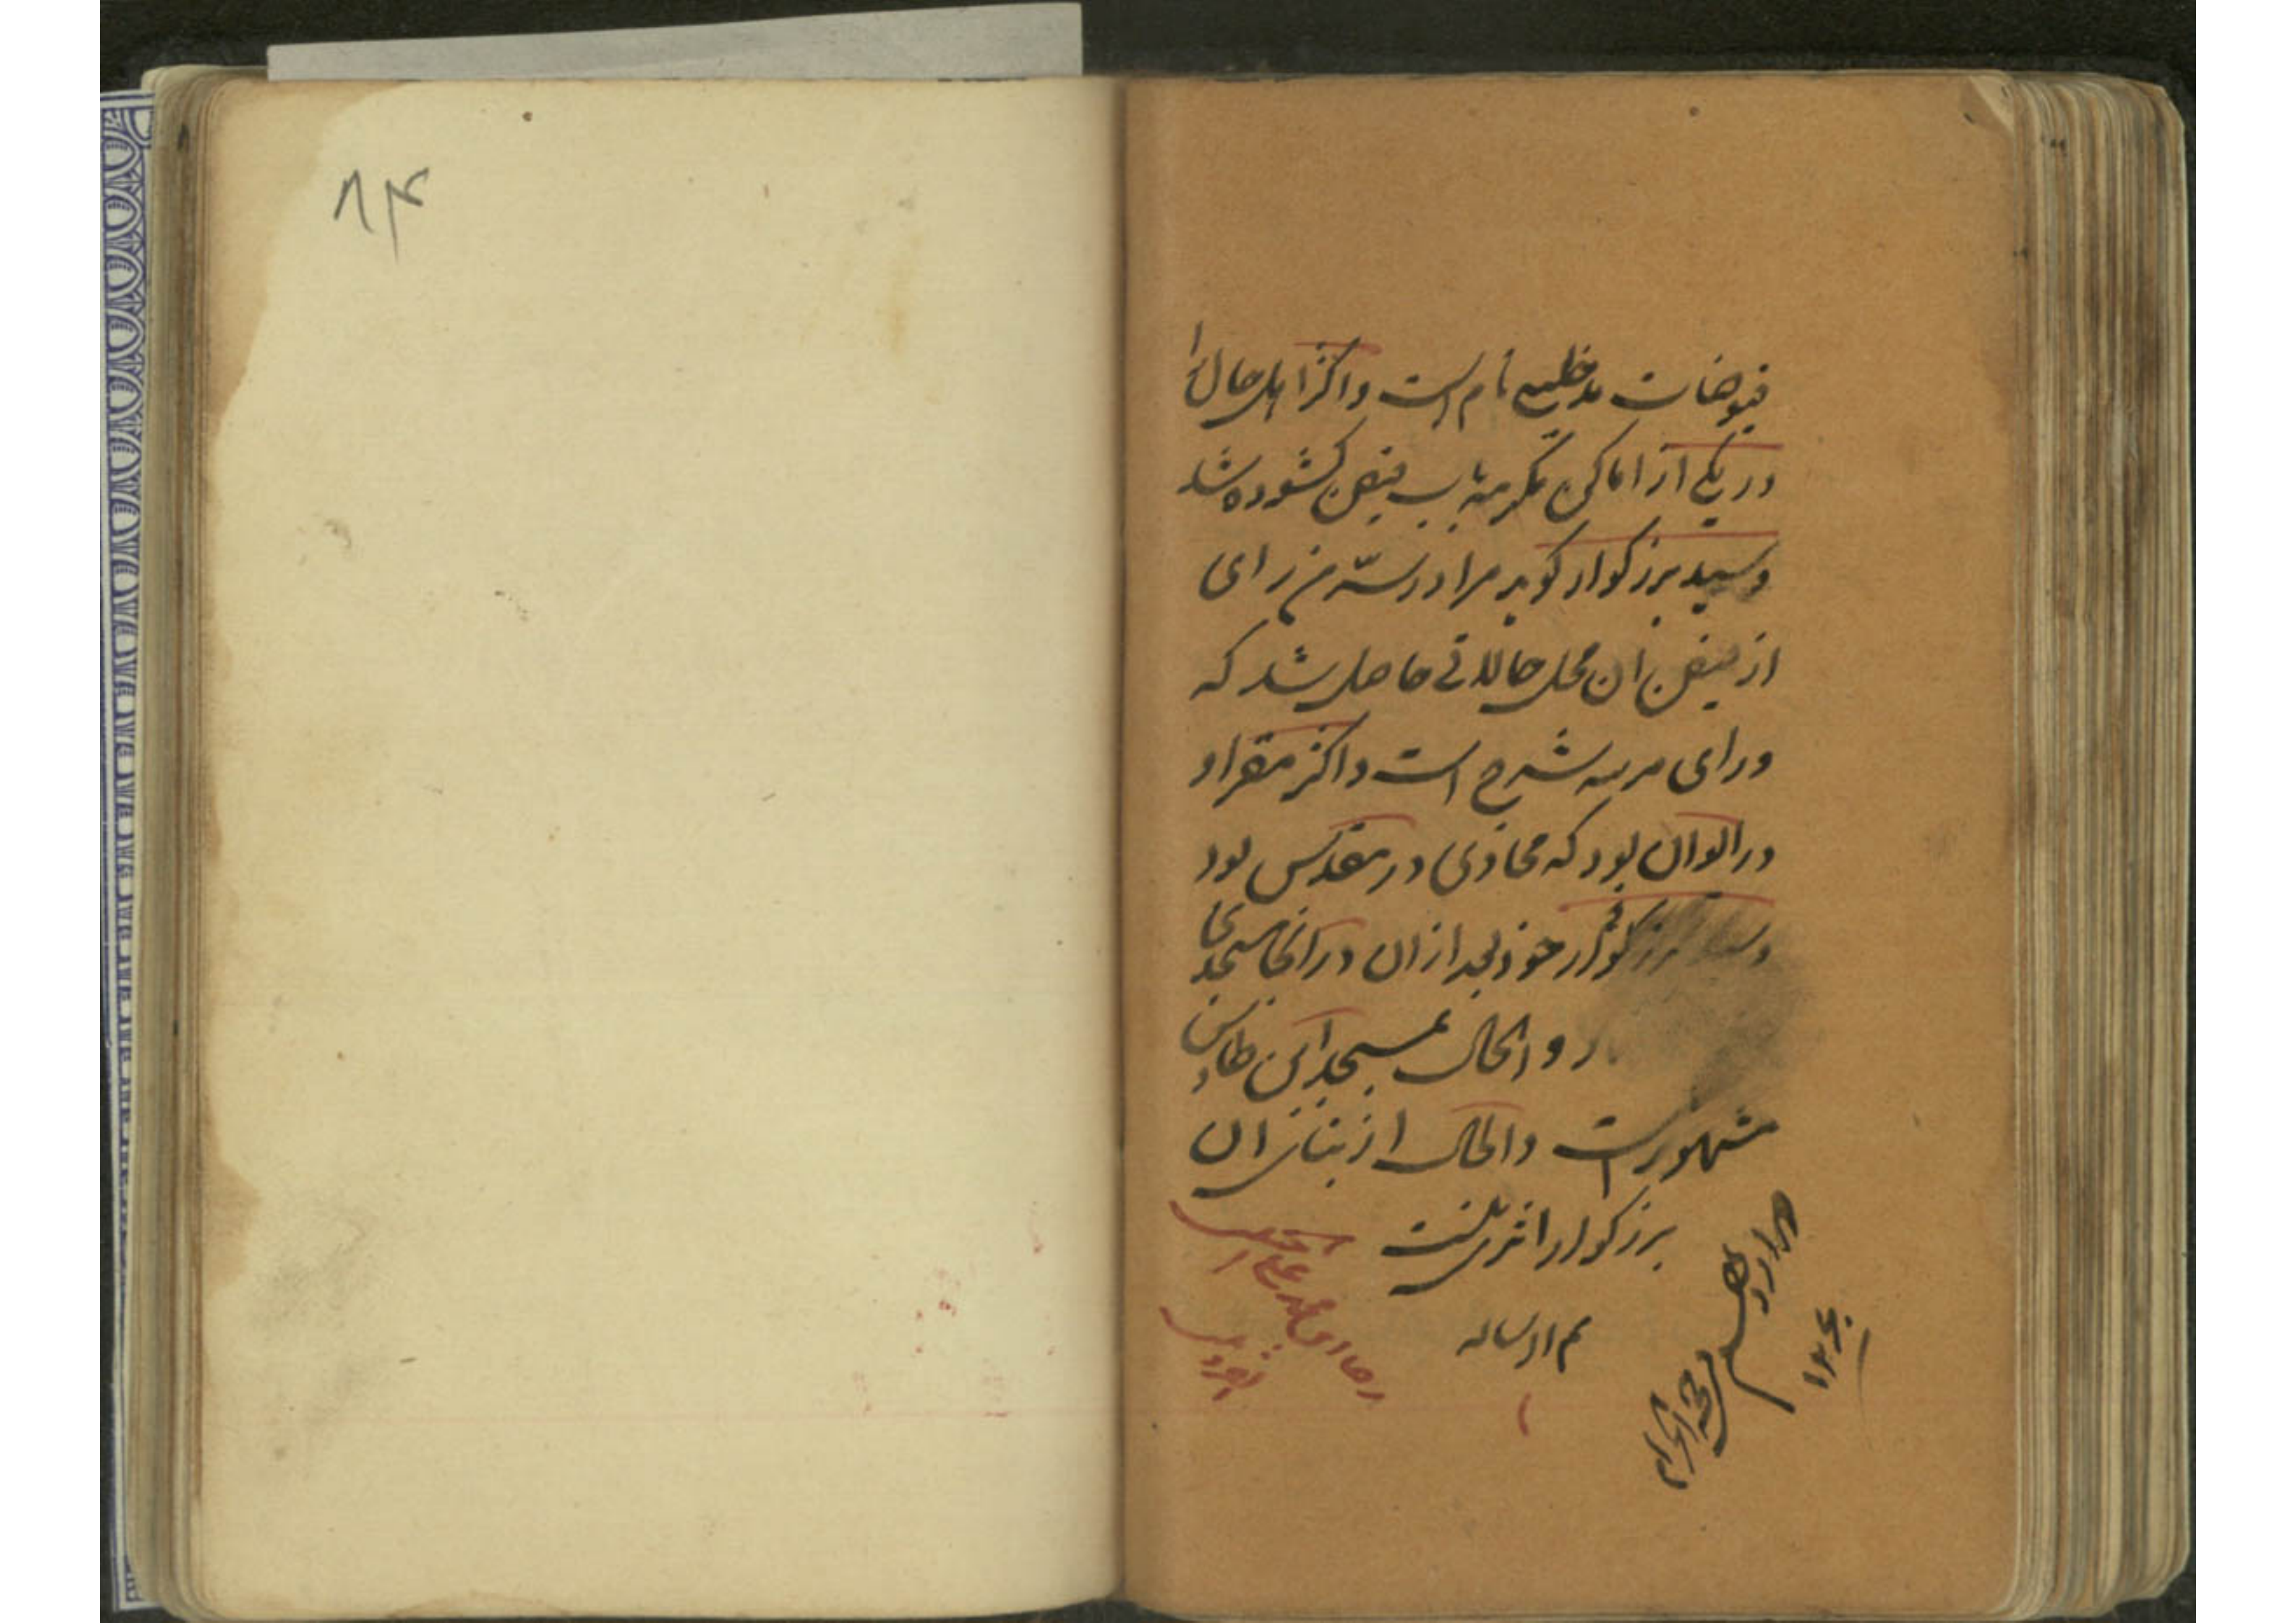 فیوضات مدخلیه تام است و اکثر اهل حال را
در یکی از اماکن مکرمه باب فیض کشوده شد
و سید بزرکوار کوید مرا در سرّ من رای
از فیض ان محل حالاتی حاصل شد که
ورای مرتبه شرح است و اکثر مقر او
در ایوان بود که محاذی در مقدس بود
و سید بزرکوار خود بعد از ان در انجا مسجدی
و الحال بمسجد ابن طاوس
مشهور است و الحال از بنای ان
بزرکوار اثری نیست
تم الرساله
محمد علی
۱۲۶۰
۸۴